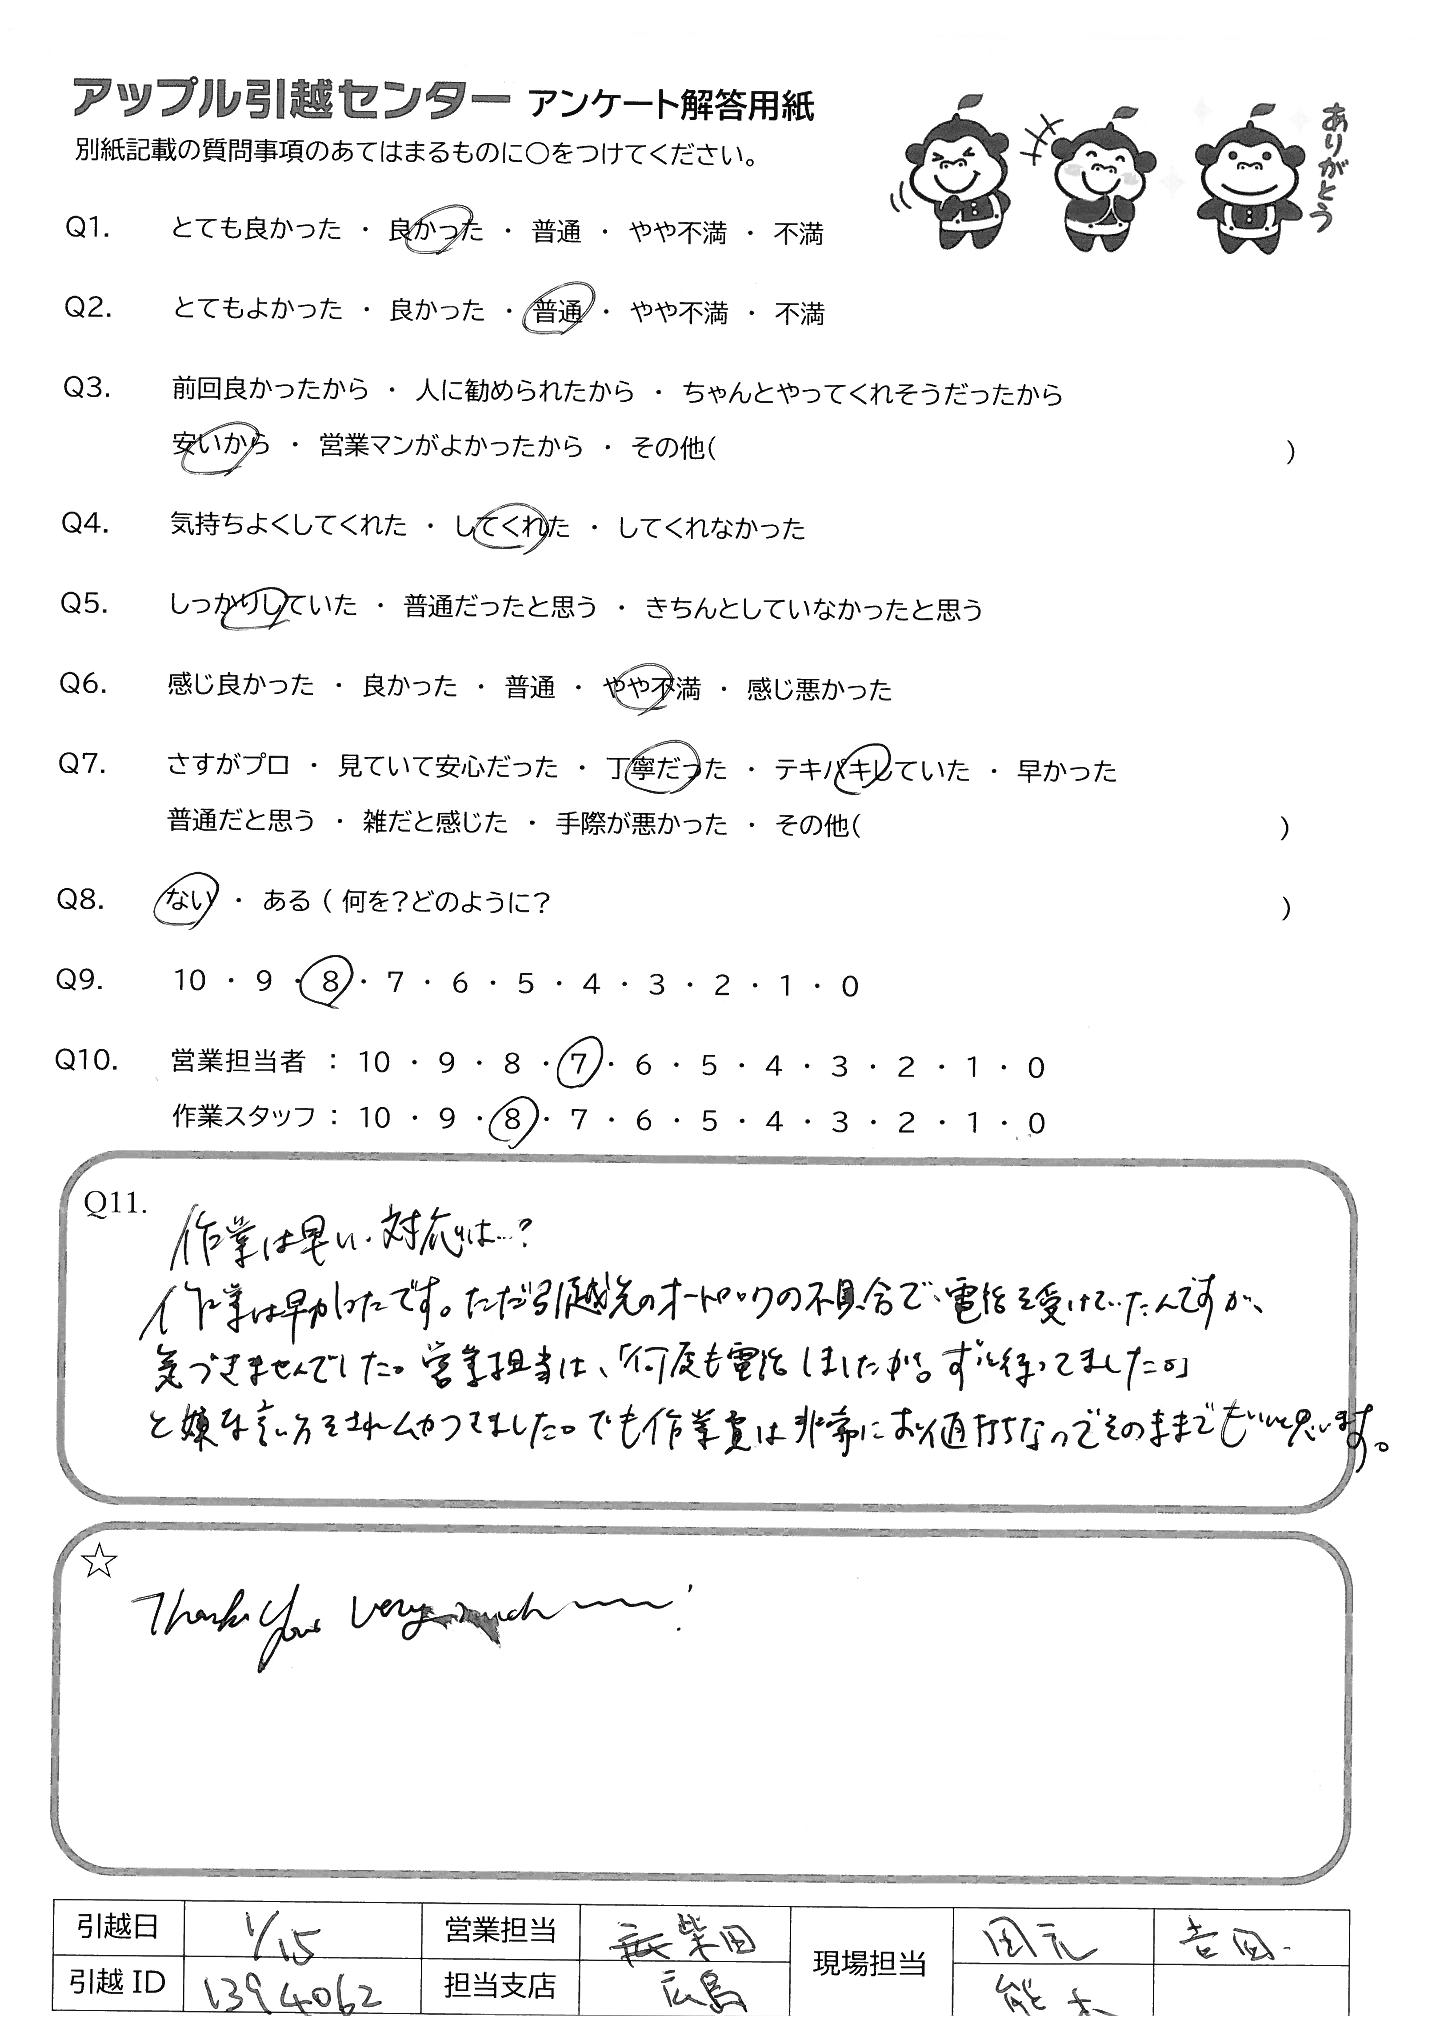 アップル引越センター アンケート解答用紙
別紙記載の質問事項のあてはまるものに○をつけてください。
ありがとう
Q1. とても良かった ・ 良かった ・ 普通 ・ やや不満 ・ 不満
Q2. とてもよかった ・ 良かった ・ 普通 ・ やや不満 ・ 不満
Q3. 前回良かったから ・ 人に勧められたから ・ ちゃんとやってくれそうだったから
安いから ・ 営業マンがよかったから ・ その他( )
Q4. 気持ちよくしてくれた ・ してくれた ・ してくれなかった
Q5. しっかりしていた ・ 普通だったと思う ・ きちんとしていなかったと思う
Q6. 感じ良かった ・ 良かった ・ 普通 ・ やや不満 ・ 感じ悪かった
Q7. さすがプロ ・ 見ていて安心だった ・ 丁寧だった ・ テキパキしていた ・ 早かった
普通だと思う ・ 雑だと感じた ・ 手際が悪かった ・ その他( )
Q8. ない ・ ある ( 何を?どのように? )
Q9. 10 ・ 9 ・ 8 ・ 7 ・ 6 ・ 5 ・ 4 ・ 3 ・ 2 ・ 1 ・ 0
Q10. 営業担当者 : 10 ・ 9 ・ 8 ・ 7 ・ 6 ・ 5 ・ 4 ・ 3 ・ 2 ・ 1 ・ 0
作業スタッフ : 10 ・ 9 ・ 8 ・ 7 ・ 6 ・ 5 ・ 4 ・ 3 ・ 2 ・ 1 ・ 0
Q11.
作業は早い、対応は…?
作業は早かったです。ただ引越先のオートロックの不具合で、電話を受けていたんですが、
気づきませんでした。営業担当は、「何度も電話しましたから。ずっと待ってました。」
と嫌な言い方をされムカつきました。でも作業費は非常にお値打ちなのでそのままでもいいと思います。
☆
Thank you very much 〜〜〜!
引越日 1/15 営業担当 柴田 現場担当 田元 吉田
引越ID 1394062 担当支店 広島 熊本